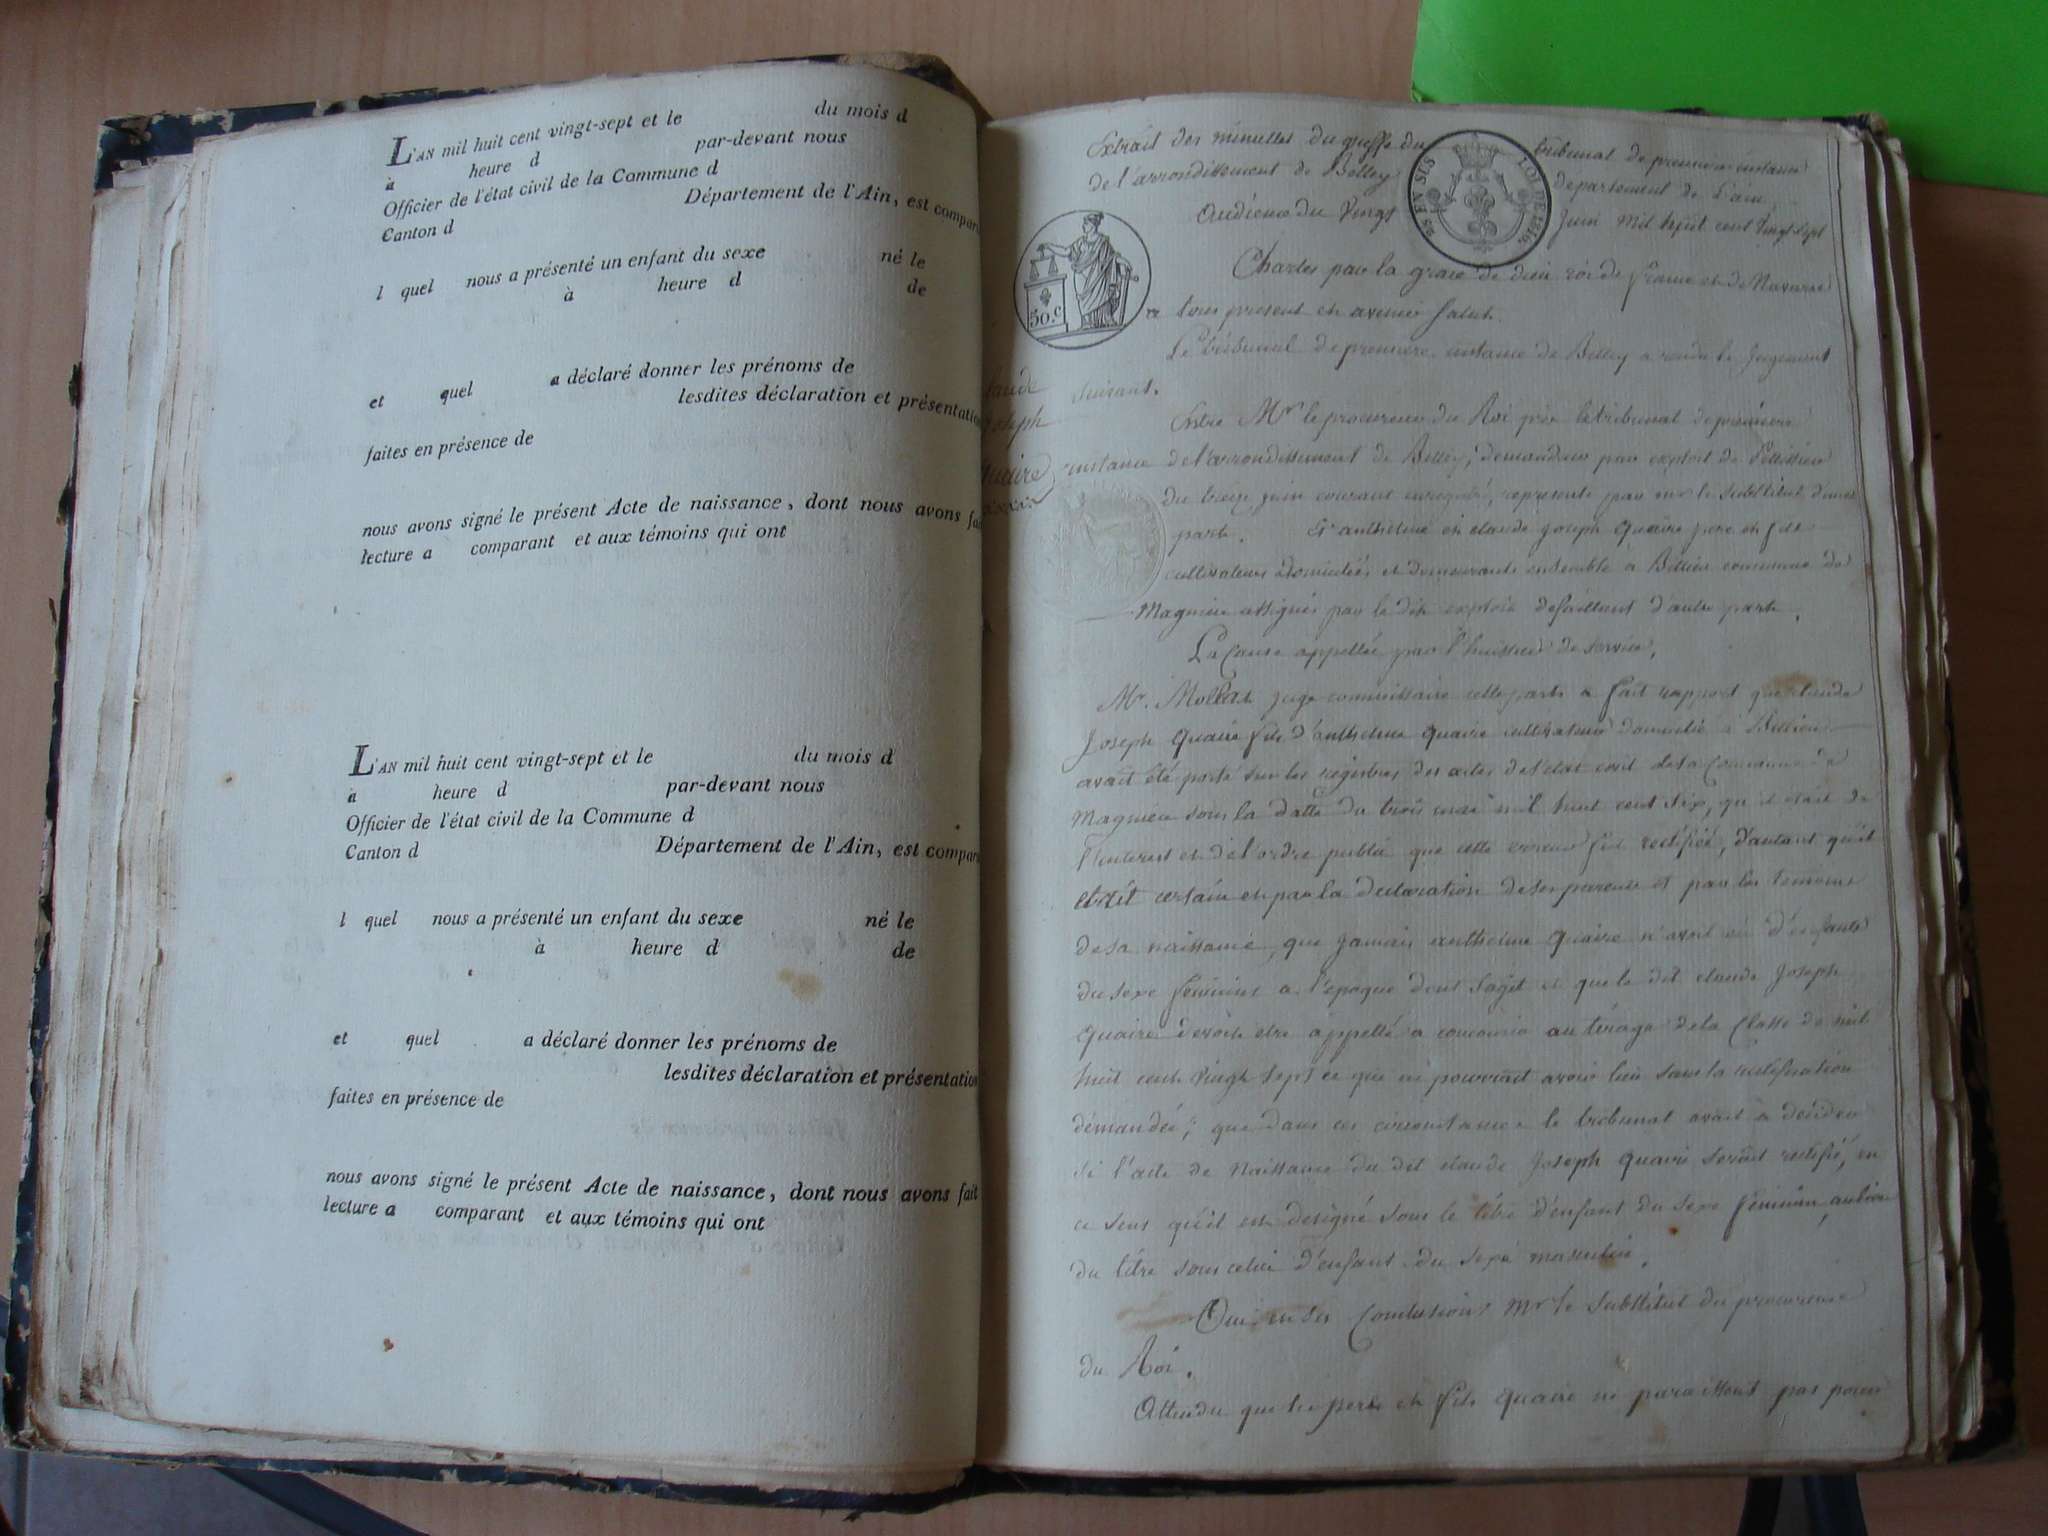 L'AN mil huit cent vingt-sept et le du mois d
à heure d par-devant nous
Officier de l'état civil de la Commune d
Canton d Département de l'Ain, est compar
l quel nous a présenté un enfant du sexe né le
à heure d de
et quel a déclaré donner les prénoms de
lesdites déclaration et présentation
faites en présence de
nous avons signé le présent Acte de naissance, dont nous avons fai
lecture a comparant et aux témoins qui ont
L'AN mil huit cent vingt-sept et le du mois d
à heure d par-devant nous
Officier de l'état civil de la Commune d
Canton d Département de l'Ain, est compar
l quel nous a présenté un enfant du sexe né le
à heure d de
et quel a déclaré donner les prénoms de
lesdites déclaration et présentation
faites en présence de
nous avons signé le présent Acte de naissance, dont nous avons fait
lecture a comparant et aux témoins qui ont
Extrait des minuttes du greffe du tribunal de premiere instance
de l'arrondissement de Belley departement de l'ain,
Audience du Vingt juin mil huit cent vingt sept
EN SUS LOI DE 1816.
50.c
Charles par la grace de dieu roi de france et de Navarre
a tous present et avenir salut.
Le tribunal de premiere instance de Belley a rendu le jugement
suivant.
laude
Joseph
quaire
Entre Mr le procureur du Roi près le tribunal de premiere
instance de l'arrondissement de Belley, demandeur par exploit de Pellissier
du treize juin courant enregistré, representé par mr le substitut d'une
part. Et anthelme et claude joseph quaire pere et fils
cultivateurs domiciliés et demeurants ensemble à Billieu commune de
Magnieu assignés par le dit exploit defaillant d'autre part.
La Cause appellée par l'huissier de service,
Mr. Mollet juge commissaire cette parts a fait rapport que claude
Joseph quaire fils d'anthelme quaire cultivateur domicilié à Billieu
avait été porté sur les registres des actes de l'etat civil de sa Commune de
Magnieu sous la datte du trois mai mil huit cent six, qu'il était de
l'interest et de l'ordre public que cette erreur fut rectifiée, d'autant qu'il
etait certain et par la declaration de ses parents et par les temoins
de sa naissance, que jamais anthelme quaire n'avait eu d'enfants
du sexe feminins a l'epoque dont s'agit et que le dit claude Joseph
quaire devoit etre appellé a concourir au tirage de la Classe de mil
huit cent vingt sept ce qui ne pourrait avoir lieu sans la rectification
demandée; que dans ces circonstances le tribunal avait à decider
si l'acte de Naissance du dit claude Joseph quaire serait rectifié, en
ce sens qu'il est designé sous le titre d'enfant du sexe féminin, au lieu
du titre sous celui d'enfant du sexe masculin.
Oui en ses Conclusions mr le substitut du procureur
du Roi.
Attendu que les pere et fils quaire ne paraissent pas pour